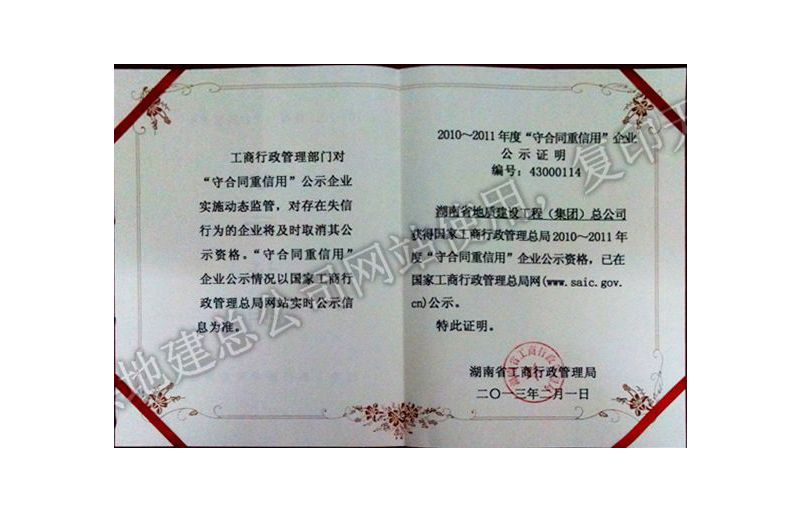 工商行政管理部门对
“守合同重信用”公示企业
实施动态监管，对存在失信
行为的企业将及时取消其公
示资格。“守合同重信用”
企业公示情况以国家工商行
政管理总局网站实时公示信
息为准。
2010～2011年度“守合同重信用”企业
公示证明
编号：43000114
湖南省地质建设工程（集团）总公司
获得国家工商行政管理总局2010～2011年
度“守合同重信用”企业公示资格，已在
国家工商行政管理总局网(www.saic.gov.
cn)公示。
特此证明。
湖南省工商行政管理局
二〇一三年二月一日
地建总公司网站使用，复印无